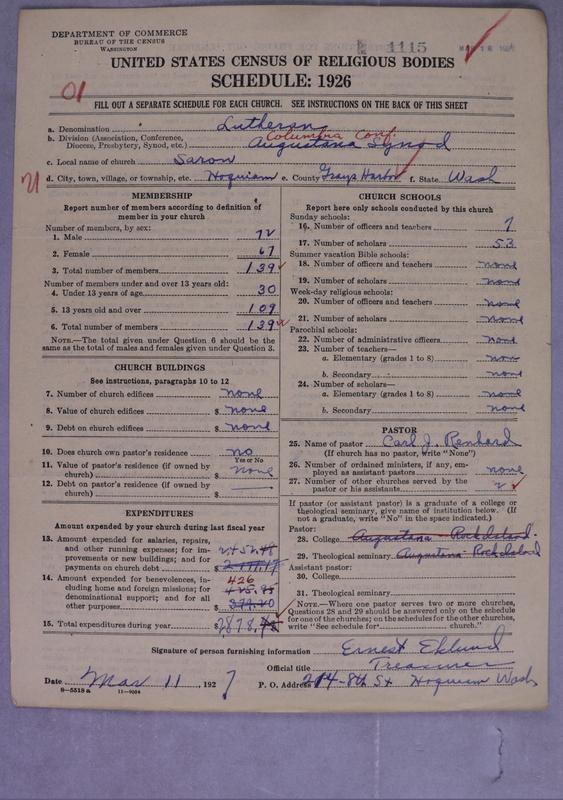 DEPARTMENT OF COMMERCE
BUREAU OF THE CENSUS
WASHINGTON
1115
UNITED STATES CENSUS OF RELIGIOUS BODIES
SCHEDULE: 1926
01
FILL OUT A SEPARATE SCHEDULE FOR EACH CHURCH. SEE INSTRUCTIONS ON THE BACK OF THIS SHEET
a. Denomination Lutheran
Columbia Conf.
b. Division (Association, Conference, Diocese, Presbytery, Synod, etc.) Augustana Synod
c. Local name of church Saron
d. City, town, village, or township, etc. Hoquiam e. County Grays Harbor f. State Wash
MEMBERSHIP
Report number of members according to definition of
member in your church
Number of members, by sex:
1. Male 72
2. Female 67
3. Total number of members 139
Number of members under and over 13 years old:
4. Under 13 years of age 30
5. 13 years old and over 109
6. Total number of members 139
NOTE.—The total given under Question 6 should be the
same as the total of males and females given under Question 3.
CHURCH BUILDINGS
See instructions, paragraphs 10 to 12
7. Number of church edifices none
8. Value of church edifices $ none
9. Debt on church edifices $ none
10. Does church own pastor's residence? no
Yes or No
11. Value of pastor's residence (if owned by
church) $ none
12. Debt on pastor's residence (if owned by
church) $
EXPENDITURES
Amount expended by church during last fiscal year
13. Amount expended for salaries, repairs,
and other running expenses; for im-
provements or new buildings; and for
payments on church debt $
14. Amount expended for benevolences, in-
cluding home and foreign missions; for
denominational support; and for all
other purposes $
426
15. Total expenditures during year $ 2878
CHURCH SCHOOLS
Report here only schools conducted by this church
Sunday schools:
16. Number of officers and teachers 7
17. Number of scholars 53
Summer vacation Bible schools:
18. Number of officers and teachers none
19. Number of scholars none
Week-day religious schools:
20. Number of officers and teachers none
21. Number of scholars none
Parochial schools:
22. Number of administrative officers none
23. Number of teachers—
a. Elementary (grades 1 to 8) none
b. Secondary none
24. Number of scholars—
a. Elementary (grades 1 to 8) none
b. Secondary none
PASTOR
25. Name of pastor Carl J. Renhard
(If church has no pastor, write "None")
26. Number of ordained ministers, if any, em-
ployed as assistant pastors none
27. Number of other churches served by the
pastor or his assistants 2
If pastor (or assistant pastor) is a graduate of a college or
theological seminary, give name of institution below. (If
not a graduate, write "No" in the space indicated.)
Pastor:
28. College Augustana - Rock Island.
29. Theological seminary Augustana - Rock Island
Assistant pastor:
30. College
31. Theological seminary
NOTE.—Where one pastor serves two or more churches,
Questions 28 and 29 should be answered only on the schedule
for one of the churches; on the schedules for the other churches,
write "See schedule for church."
Signature of person furnishing information Ernest Eklund
Official title Treasurer
Date Mar 11, 1927 P. O. Address 214-8th St Hoquiam Wash
8—5518 a 11—9054